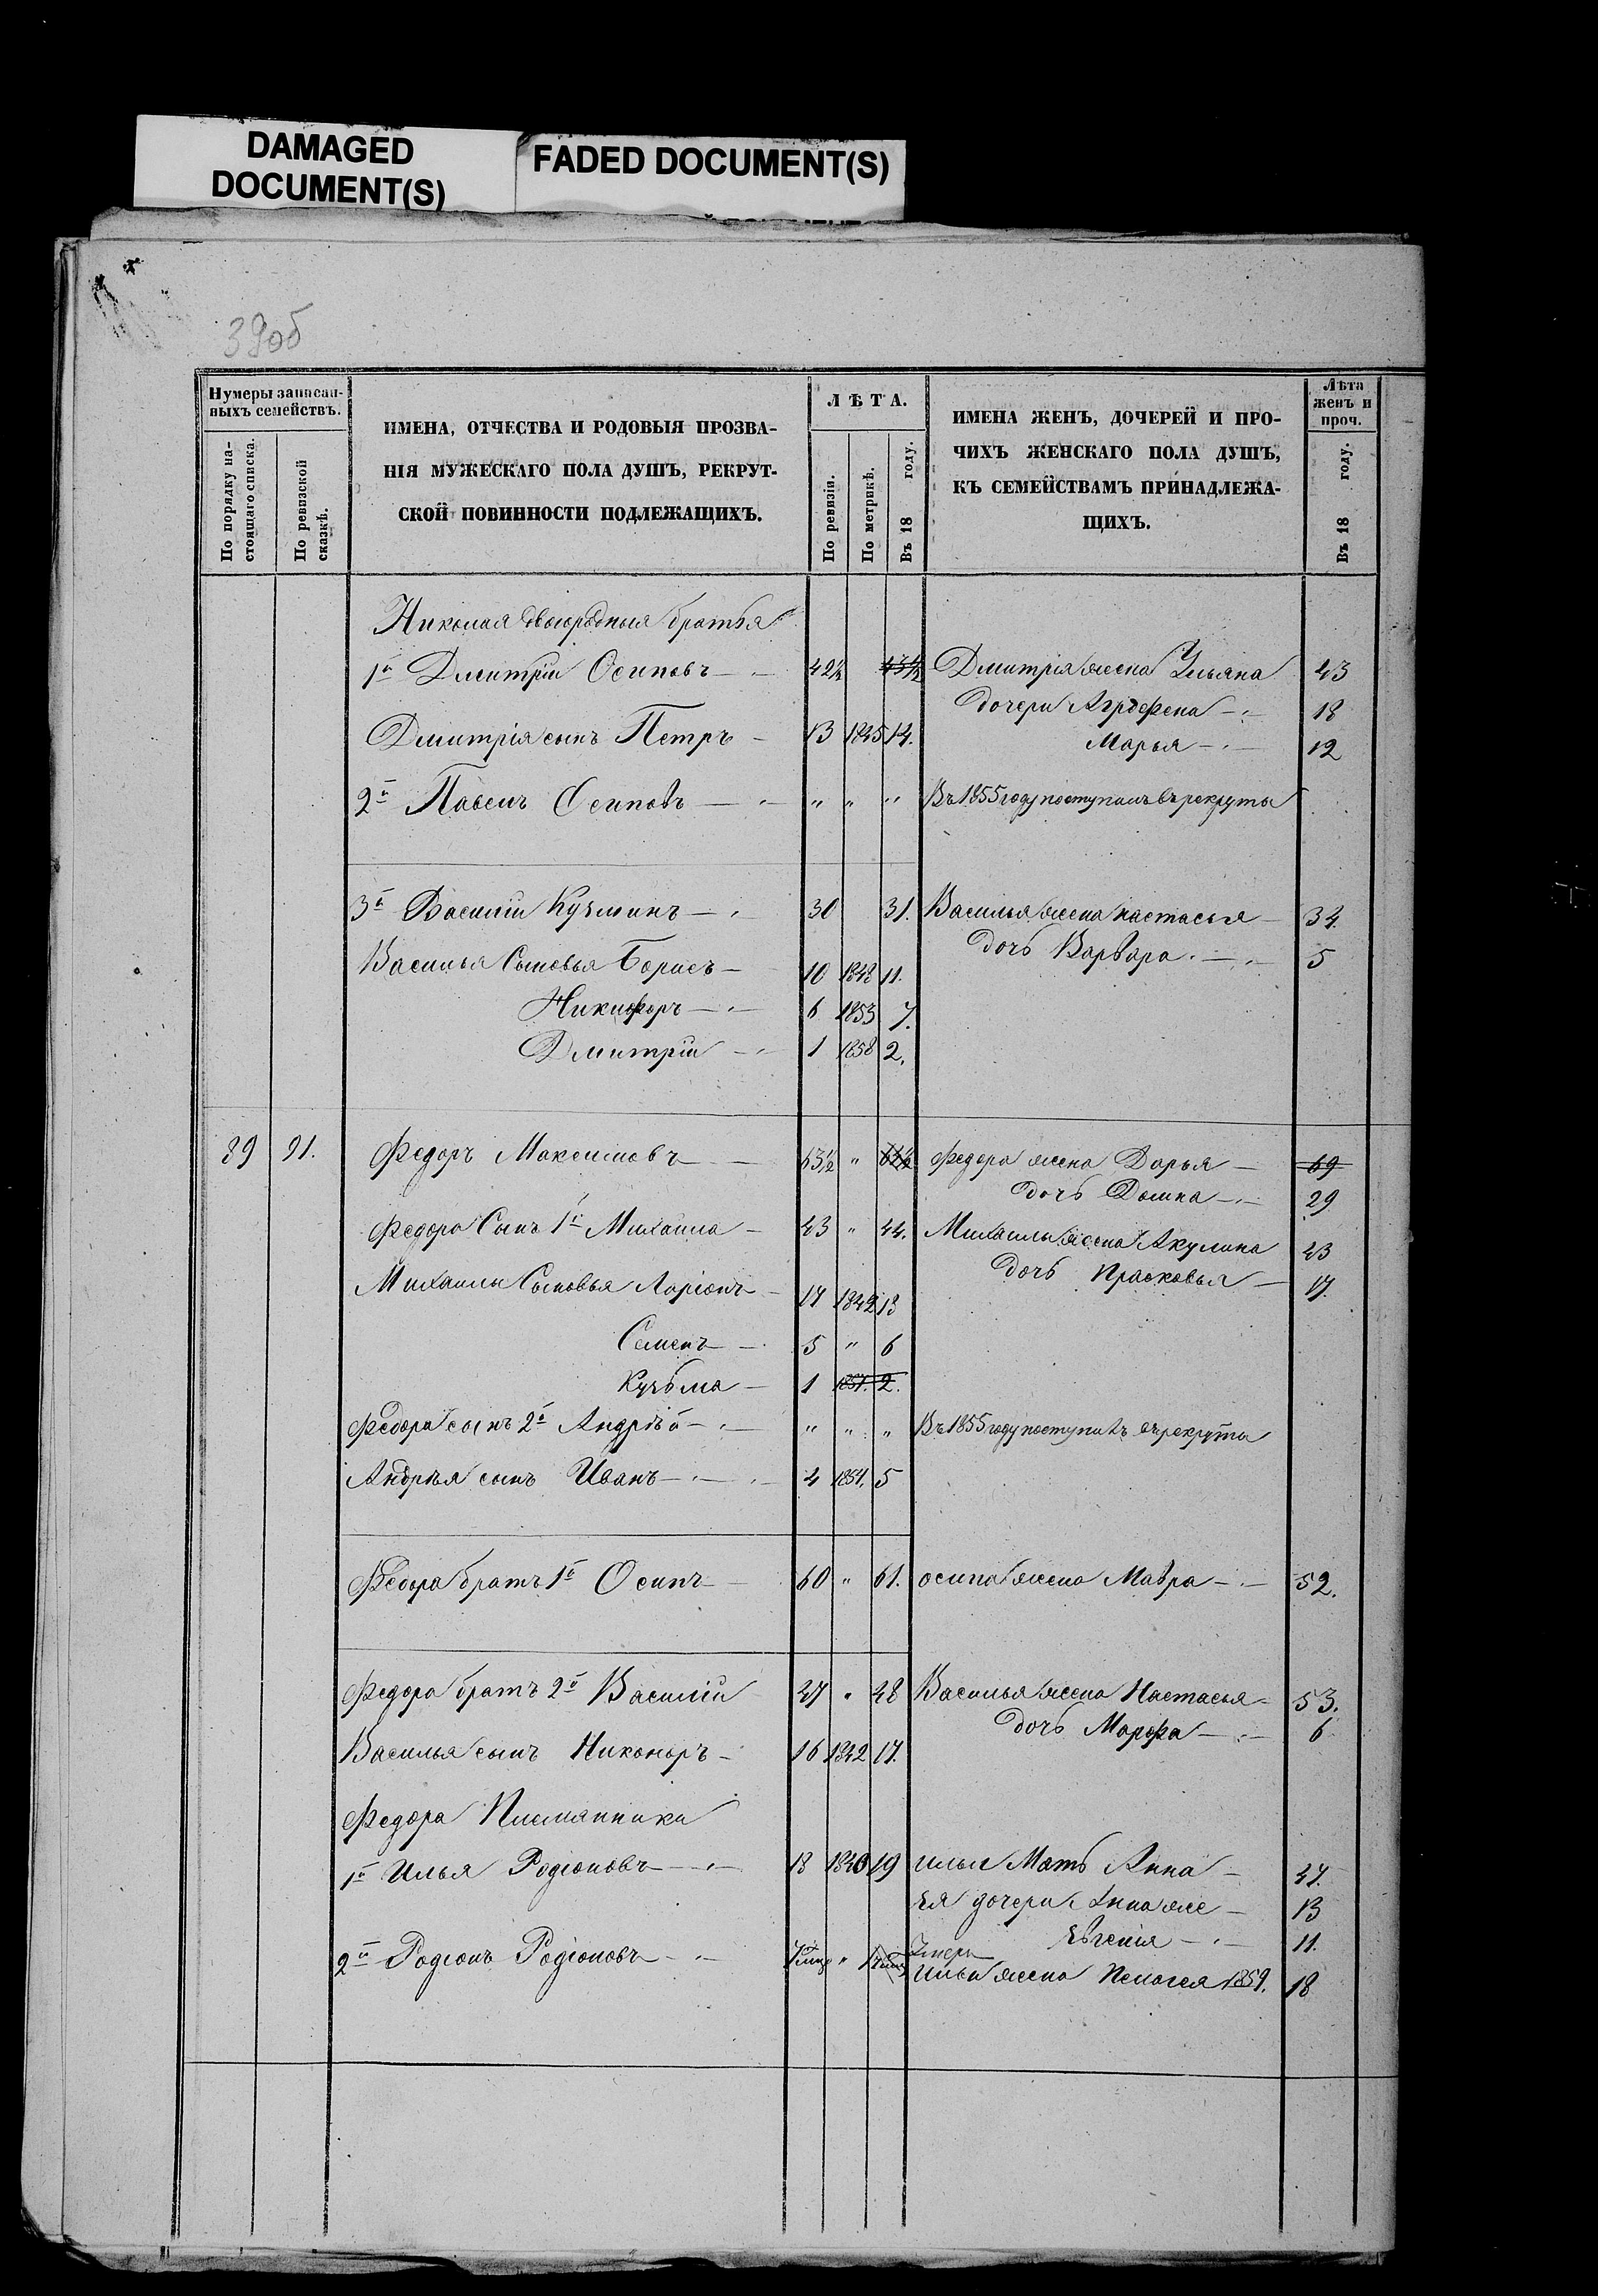 DAMAGED
DOCUMENT(S)
FADED DOCUMENT(S)
39об
Нумеры записан-
ныхъ семействъ.
По порядку на-
стоящаго списка.
По ревизской
сказкѣ.
ИМЕНА, ОТЧЕСТВА И РОДОВЫЯ ПРОЗВА-
НІЯ МУЖЕСКАГО ПОЛА ДУШЪ, РЕКРУТ-
СКОЙ ПОВИННОСТИ ПОДЛЕЖАЩИХЪ.
ЛѢТА.
По ревизіи.
По метрикѣ.
Въ 18 году.
ИМЕНА ЖЕНЪ, ДОЧЕРЕЙ И ПРО-
ЧИХЪ ЖЕНСКАГО ПОЛА ДУШЪ,
КЪ СЕМЕЙСТВАМЪ ПРИНАДЛЕЖА-
ЩИХЪ.
Лѣта
женъ и
проч.
Въ 18 году.
Николая двоюродныя братья
1й Дмитрій Осиповъ 42½ 43½ Дмитрія жена Ульяна 43
дочери Агрофена 18
Дмитрія сынъ Петръ 13 1845 14.
Марья 12
2й Павелъ Осиповъ " " " Въ 1855 году поступилъ въ рекруты
3й Василій Кузминъ 30 31. Василья жена Настасья 34.
дочь Варвара 5
Василья Сыновья Борисъ 10 1848 11.
Никифоръ 6 1853 7.
Дмитрій 1 1858 2.
89 91. Федоръ Максимовъ 63½ " Федора жена Дарья 69
дочь Домна 29
Федора Сынъ 1й Михайла 43 " 44. Михаилы жена Акулина 43
дочь Прасковья 17.
Михаилы Сыновья Ларіонъ 17 1842 18
Семенъ 5 " 6
Кузьма 1 1857. 2.
Федора сынъ 2й Андрѣй " " " Въ 1855 году поступилъ въ рекруты
Андрѣя сынъ Иванъ 4 1854. 5
Федора братъ 1й Осипъ 60 " 61. осипа жена Мавра 52.
Федора братъ 2й Василій 47 " 48 Василья жена Настасья 53.
дочь Марфа 6
Василья сынъ Никоноръ 16 1842 17.
Федора Племянники
1й Илья Родіоновъ 18 1840 19 ильи Мать Анна 47.
Ея дочери Анна же 13
Евгенія 11.
2й Родіонъ Родіоновъ "
Ильи жена Пелагея 1859. 18